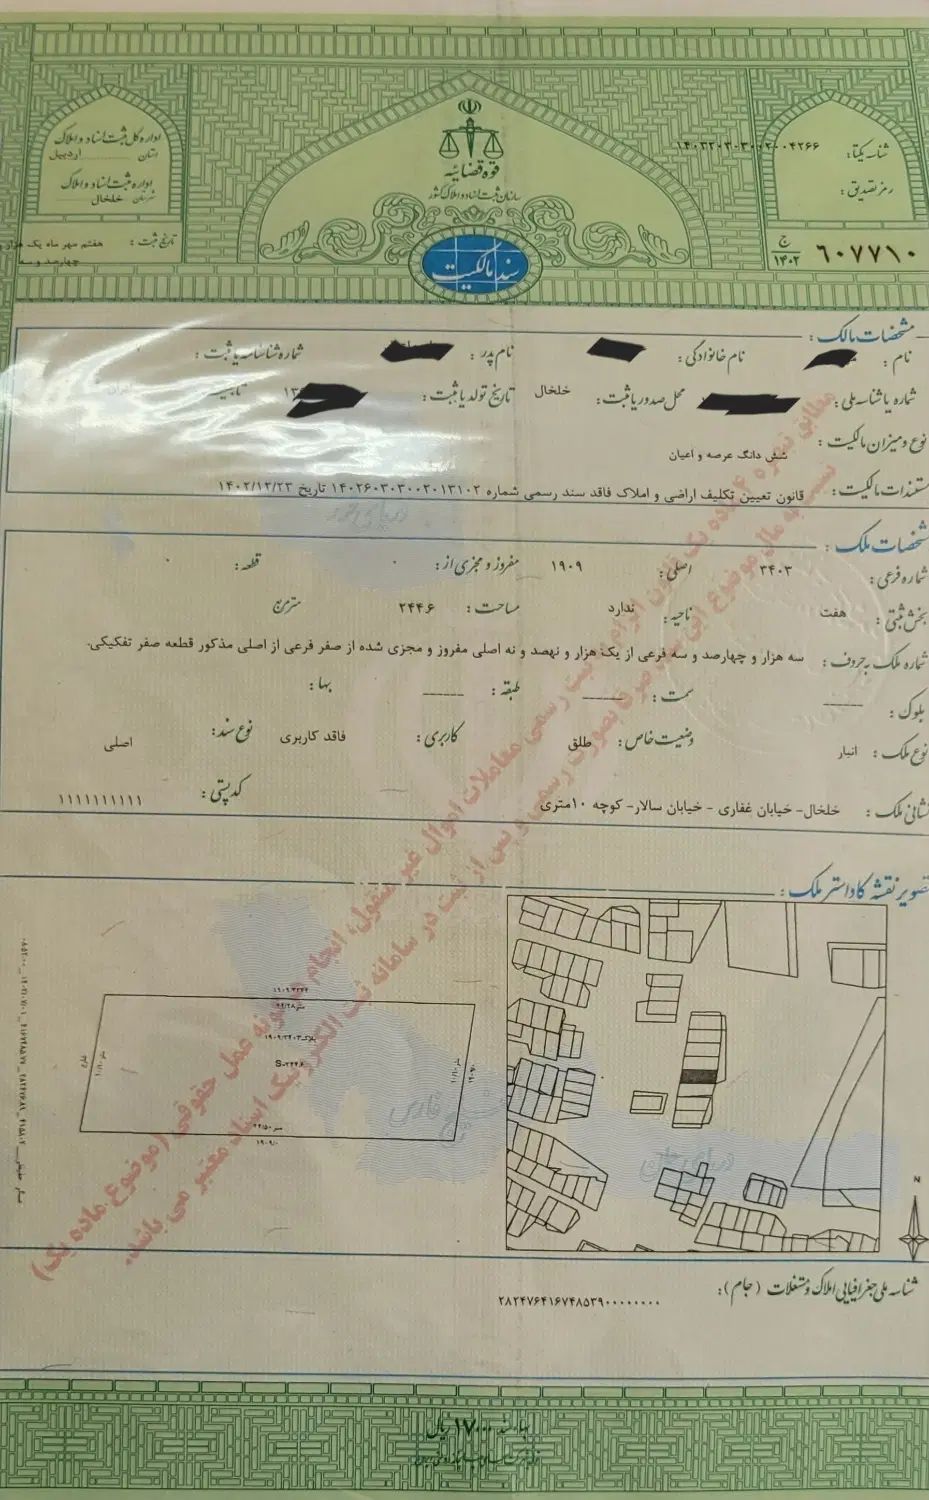 قوه قضائیه
سازمان ثبت اسناد و املاک کشور
سند مالکیت
اداره کل ثبت اسناد و املاک
استان اردبیل
اداره ثبت اسناد و املاک
شهرستان خلخال
تاریخ ثبت : هفتم مهر ماه یک هزار و
چهارصد و سه
شناسه یکتا : ۱۴۰۳۲۰۳۰۳۰۰۲۰۰۴۲۶۶
رمز تصدیق :
ج ۱۴۰۲ ۶۰۷۷۱۰
مشخصات مالک :
نام : نام خانوادگی : نام پدر : شماره شناسنامه یا ثبت :
شماره یا شناسه ملی : محل صدور یا ثبت : خلخال تاریخ تولد یا ثبت :
نوع و میزان مالکیت : شش دانگ عرصه و اعیان
مستندات مالکیت : قانون تعیین تکلیف اراضی و املاک فاقد سند رسمی شماره ۱۴۰۲۶۰۳۰۳۰۰۲۰۱۳۱۰۲ تاریخ ۱۴۰۲/۱۲/۲۳
مشخصات ملک :
شماره فرعی : ۳۴۰۳ اصلی : ۱۹۰۹ مفروز و مجزی از : ۰ قطعه : ۰
بخش ثبتی : هفت ناحیه : ندارد مساحت : ۲۴۴.۶ مترمربع
شماره ملک به حروف : سه هزار و چهارصد و سه فرعی از یک هزار و نهصد و نه اصلی مفروز و مجزی شده از صفر فرعی از اصلی مذکور قطعه صفر تفکیکی.
بلوک : سمت : طبقه : بها :
نوع ملک : انبار وضعیت خاص : طلق کاربری : فاقد کاربری نوع سند : اصلی
نشانی ملک : خلخال- خیابان غفاری - خیابان سالار- کوچه ۱۰متری کد پستی : ۱۱۱۱۱۱۱۱۱۱
تصویر نقشه کاداستر ملک :
N
شناسه ملی جغرافیایی املاک و مستغلات (جام) :
۲۸۲۴۷۶۴۱۶۷۴۸۵۳۹۰۰۰۰۰۰۰۰۰
بهاء سند ۱۷۰۰۰۰ ریال